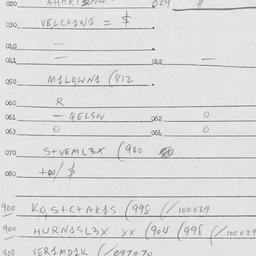 020 024 $
030 VELC+1N1 = $
040 —
041 — 042 —
050 M1LQWN1 (812
060 R
061 — QELSN 062 O
063 O 064 O
070 S+VEML3X (900
080 +W/ $
900 KOS+C+AK1S (998 (/100029
900 HURN1SL3X XX (904 (998 (/100029
900 VER1MD1K (/097070